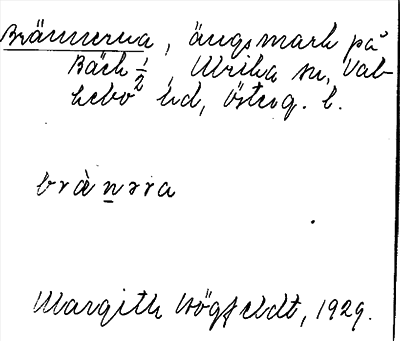 Brännerna, ängsmark på
Bäck 1/2, Ulrika sn, Val-
kebo hd, Österg. l.
brànəra
Margith Högfeldt, 1929.